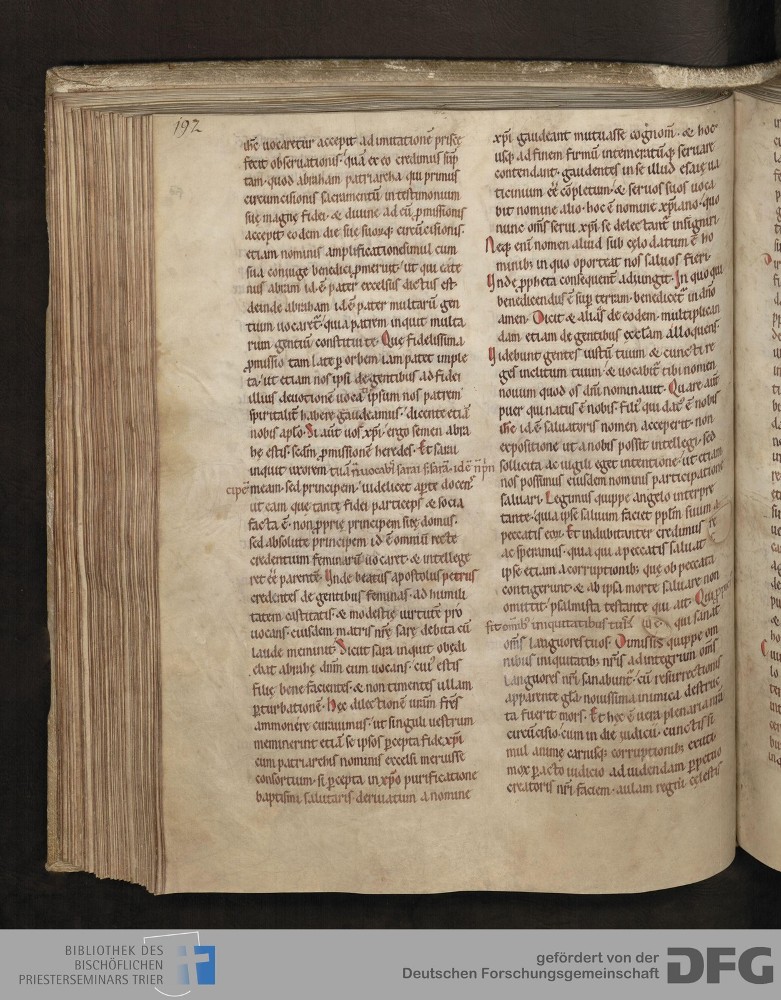 192
ihc uocaretur accepit ad imitatione priscę
fecit obseruationis· qua ex eo credimus sup
tam· quod abraham patriarcha qui primus
circumcisionis sacramentū in testimonium
suę magnę fidei· & diuinę ad eū ꝓmissionis
accepit· eodem die suę suorūq; circūcisionis·
etiam nominis amplificatione simul cum
sua coniuge benedici ꝓmeruit· ut qui eate
nus abram id ē pater excelsus dictus est·
deinde abraham id ē pater multarū gen
tium uocaret̄· quia patrem inquit multa
rum gentiū constitui te· Quę fidelissima
ꝓmissio tam late ꝑ orbem iam patet imple
ta· ut etiam nos ipsi de gentibus ad fidei
illius deuotionē uocati ipsum nos patrem
spiritalit̄ habere gaudeamus· dicente etiā
nobis apl̄o· Si aut uos xp̄i· ergo semen abra
hę estis· sedm̄ ꝓmissionē heredes· Et sarai
inquit uxorem tuā n̄ uocabis sarai s; sarā· id ē n̄ prin
cipē meam· sed principem· uidelicet aperte docens
ut eam quę tantę fidei particeps & socia
facta ē· non ꝓprię principem suę domus·
sed absolute principem id ē omniū recte
credentium feminarū uocaret· & intellege
ret eē parentē· Unde beatus apostolus petrus
credentes de gentibus feminas· ad humili
tatem castitatis· & modestię uirtutē pro
uocans· eiusdem matris nr̄ę sarę debita cū
laude meminit· Sicut sara inquit obędi
ebat abrahę dn̄m eum uocans· cuius estis
filię bene facientes· & non timentes ullam
ꝑturbationē· Hęc dilectionē uram̄ fr̄es
ammonere curauimus· ut singuli uestrum
meminerint etiā se ipsos ꝑcepta fide xp̄i
cum patriarchis nominis excelsi meruisse
consortium· si ꝑcepta in xp̄o purificatione
baptismi salutaris· deriuatum a nomine
xp̄i gaudeant mutuasse cognom̄· & hoc
usq; ad finem firmū intemeratūq; seruare
contendant· gaudentes in se illud esaię ua
ticinium eē cōpletum· & seruos suos uoca
bit nomine alio· hoc ē nomine xp̄iano· quo
nunc om̄s serui xp̄i se delectant̄ insigniri·
Neq; enī nomen aliud sub cęlo datum ē ho
minib; in quo oporteat nos saluos fieri·
Unde ꝓpheta consequent̄ adiungit· In quo qui
benedicendus ē sup terram· benedicet̄ in dn̄o
amen· Dicit & alias de eodem· multiplican
dam etiam de gentibus eccl̄am alloquens·
Uidebunt gentes iustū tuum· & cuncti re
ges inclitum tuum· & uocabit̄ tibi nomen
nouum quod os dn̄i nominauit· Quare aut
puer qui natus ē nobis· filius qui datus ē nobis
ihc id ē saluatoris nomen acceperit· non
expositione ut a nobis possit intellegi· sed
sollicita ac uigili eget intentione· ut etiam
nos possimus eiusdem nominis participatione
saluari· Legimus quippe angelo interpre
tante· quia ipse saluum faciet ppl̄m suum a
peccatis eorum· Et indubitanter credimus
ac speramus· quia qui a peccatis saluat
ipse etiam a corruptionib; quę ob peccata
contigerunt· & ab ipsa morte saluare non
omittit· psalmista testante qui ait· Qui
fit omib; iniquitatibus tuis· qui sanat
om̄s languores tuos· Dimissis quippe om
nibus iniquitatib; nr̄is ad integrum om̄s
languores nr̄i sanabunt̄· cū resurrectionis
apparente gl̄a· nouissima inimica destruc
ta fuerit mors· Et hęc ē uera plenaria nr̄a
circūcisio· cum in die iudicii cunctis si
mul animę carnisq; corruptionib; exuti
mox peracto iudicio ad uidendam ꝑpetuo
creatoris nr̄i faciem· aulam regni cęlestis
BIBLIOTHEK DES
BISCHÖFLICHEN
PRIESTERSEMINARS TRIER
gefördert von der
Deutschen Forschungsgemeinschaft
DFG